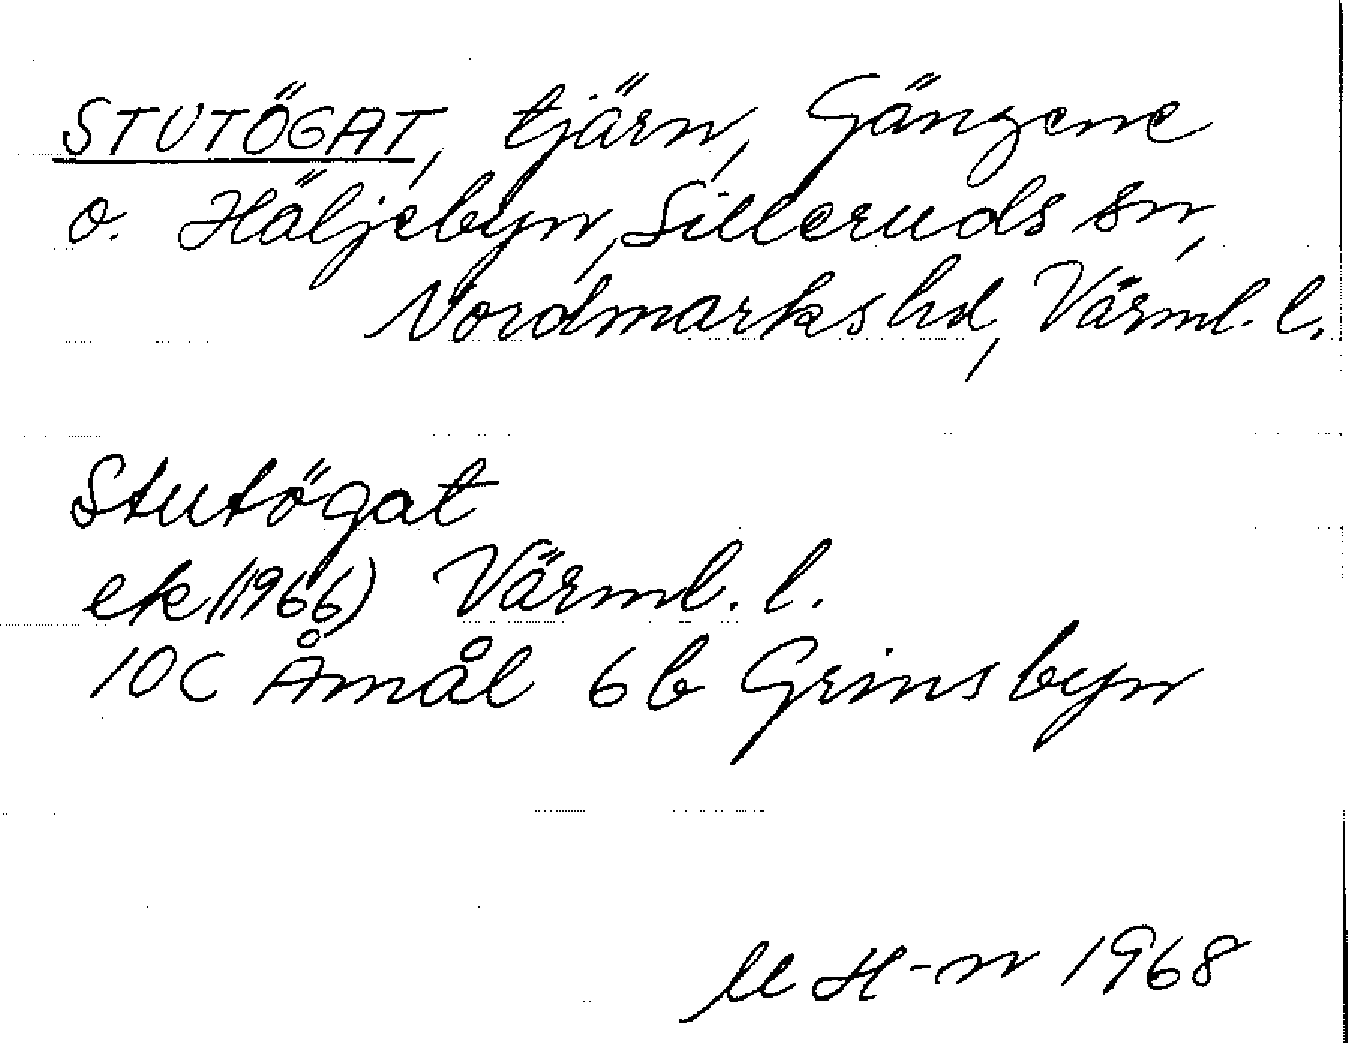 STUTÖGAT, tjärn, Gängene
o. Häljebyn, Silleruds sn,
Nordmarks hd, Värml. l.
Stutögat
ek (1966) Värml. l.
10C Åmål 6b Grinsbyn
M H-n 1968